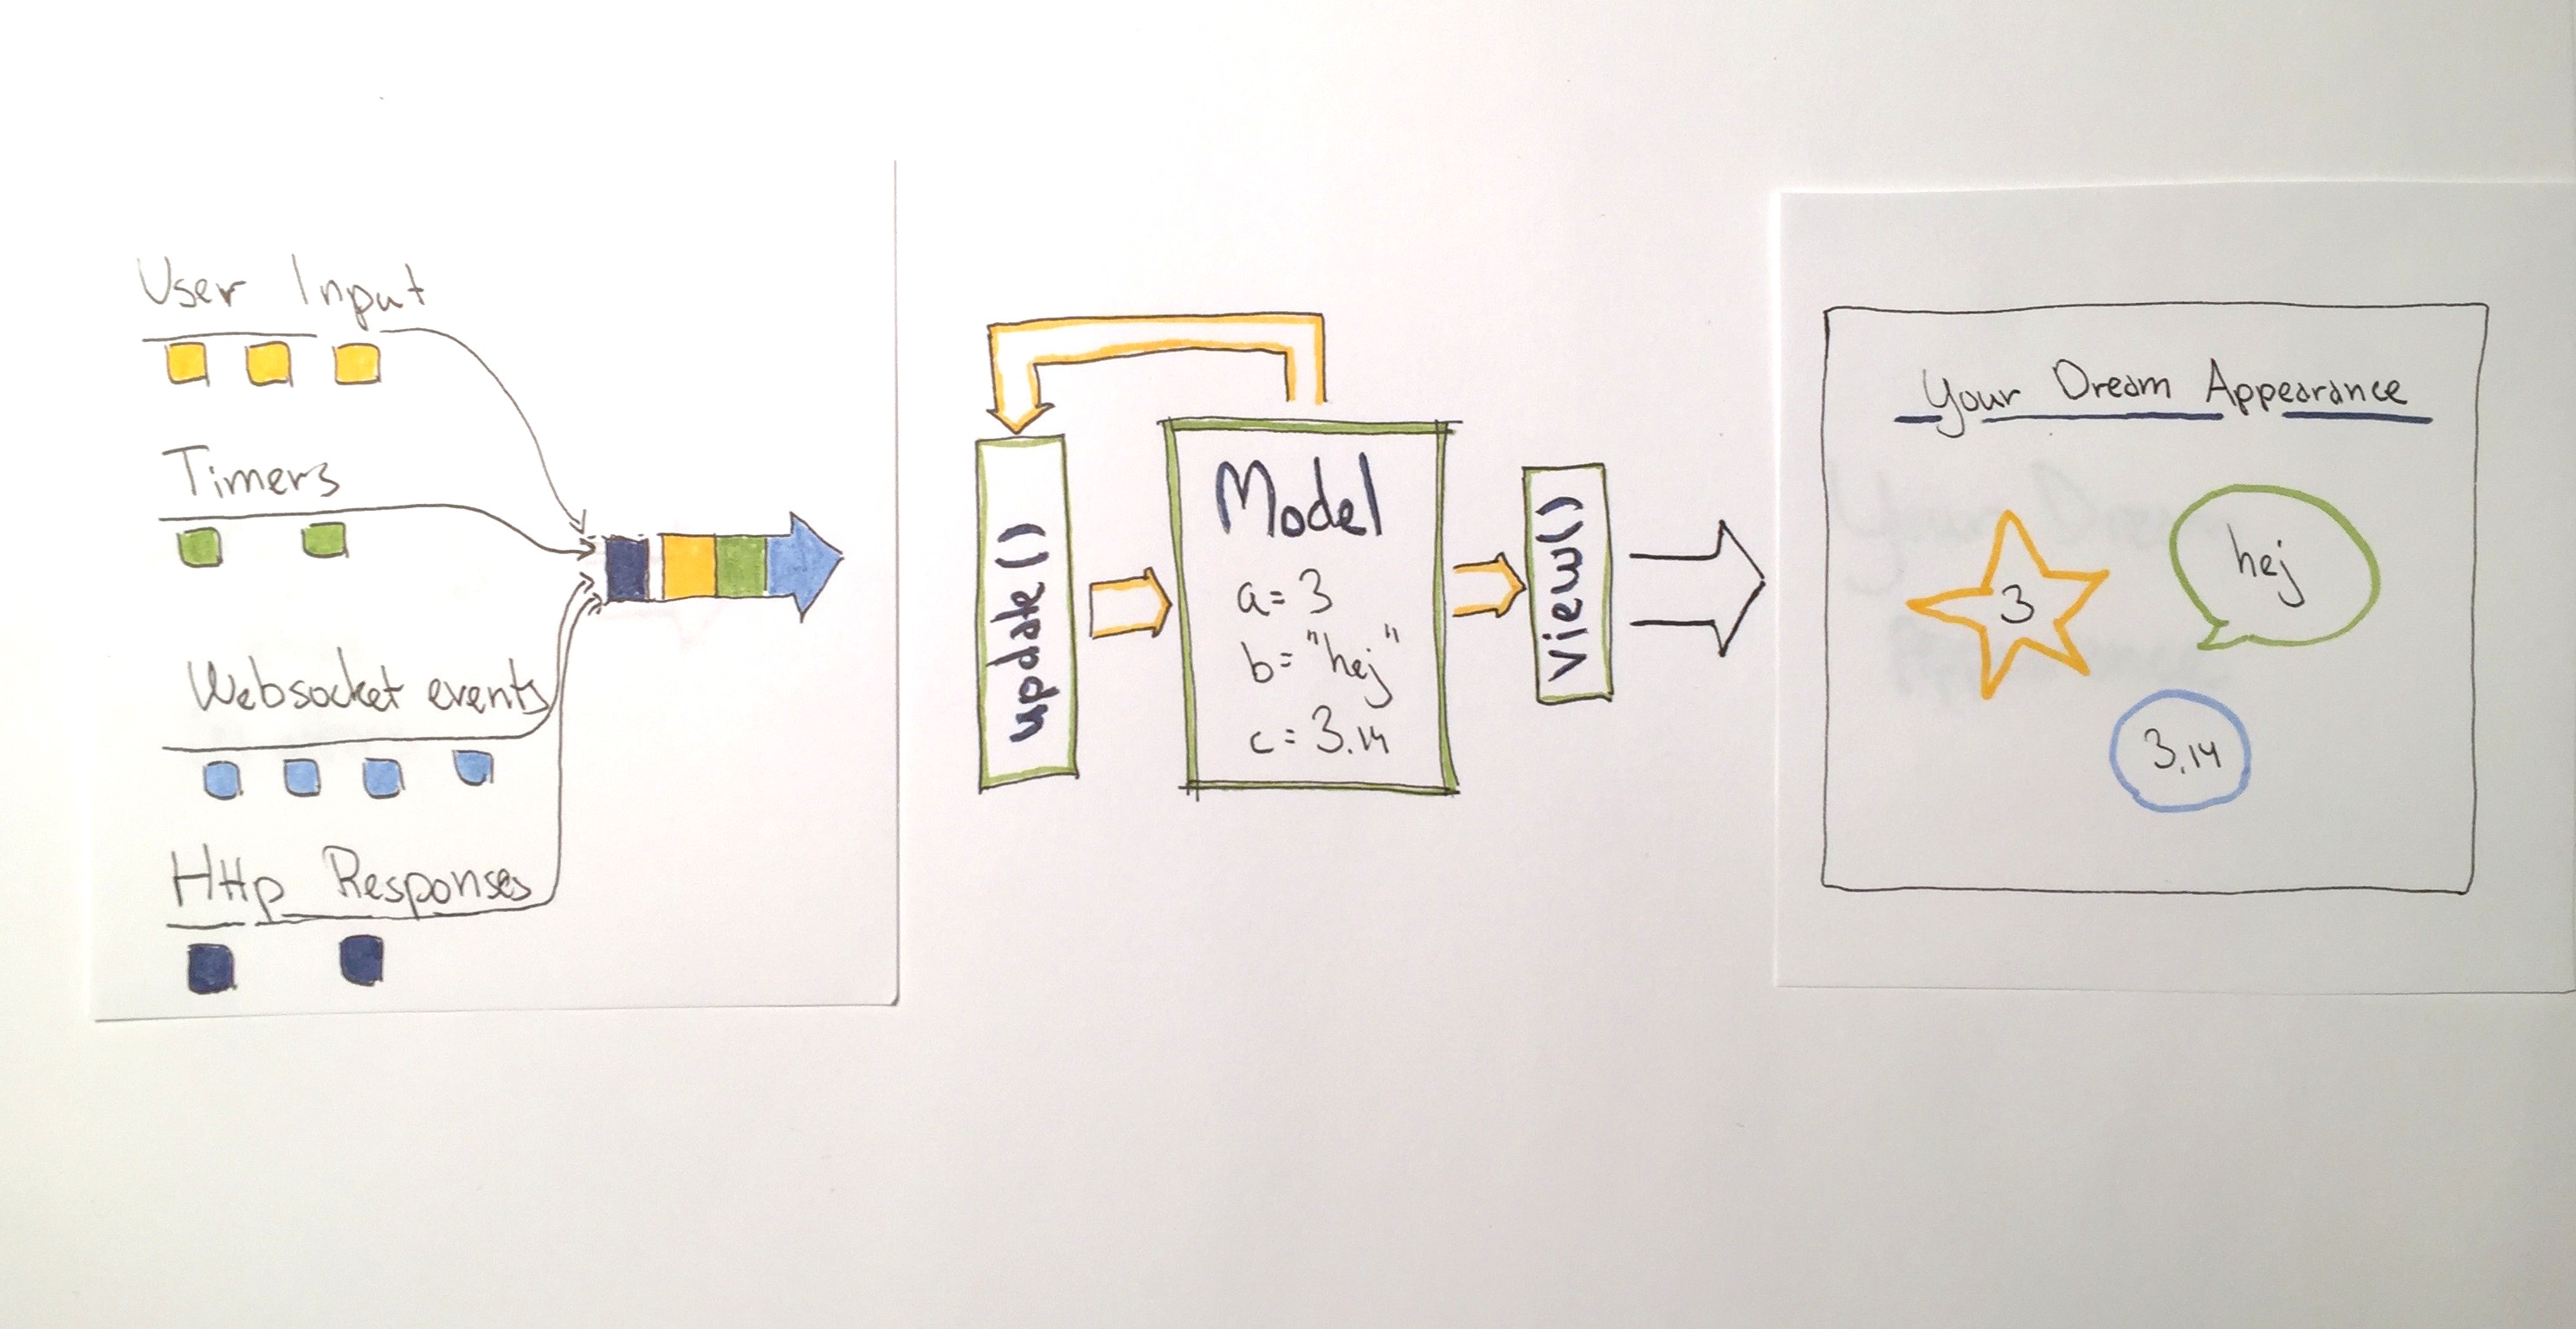 User Input
Timers
Websocket events
Http Responses
update()
Model
a = 3
b = "hej"
c = 3.14
view()
Your Dream Appearance
3
hej
3.14